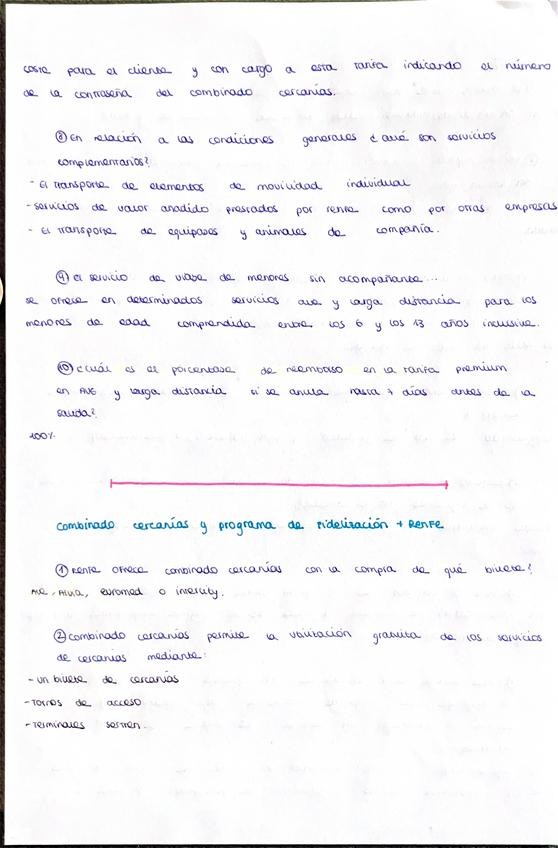 coste para el cliente y con cargo a esta tarifa indicando el número
de la contraseña del combinado cercanías.
⑧ En relación a las condiciones generales ¿ qué son servicios
complementarios?
- El transporte de elementos de movilidad individual
- servicios de valor añadido prestados por renfe como por otras empresas
- El transporte de equipajes y animales de compañía.
⑨ el servicio de viaje de menores sin acompañante...
se ofrece en determinados servicios ave y larga distancia para los
menores de edad comprendida entre los 6 y los 13 años inclusive.
⑩ ¿cuál es el porcentaje de reembolso en la tarifa premium
en AVE y larga distancia si se anula hasta 7 días antes de la
salida?
100%.
Combinado cercanías y programa de Fidelización + RENFE
① Renfe ofrece combinado cercanías con la compra de qué billete?
Ave, Alvia, euromed o intercity.
② combinado cercanías permite la utilización gratuita de los servicios
de cercanías mediante:
- un billete de cercanías
- Tornos de acceso
- Terminales sertren.